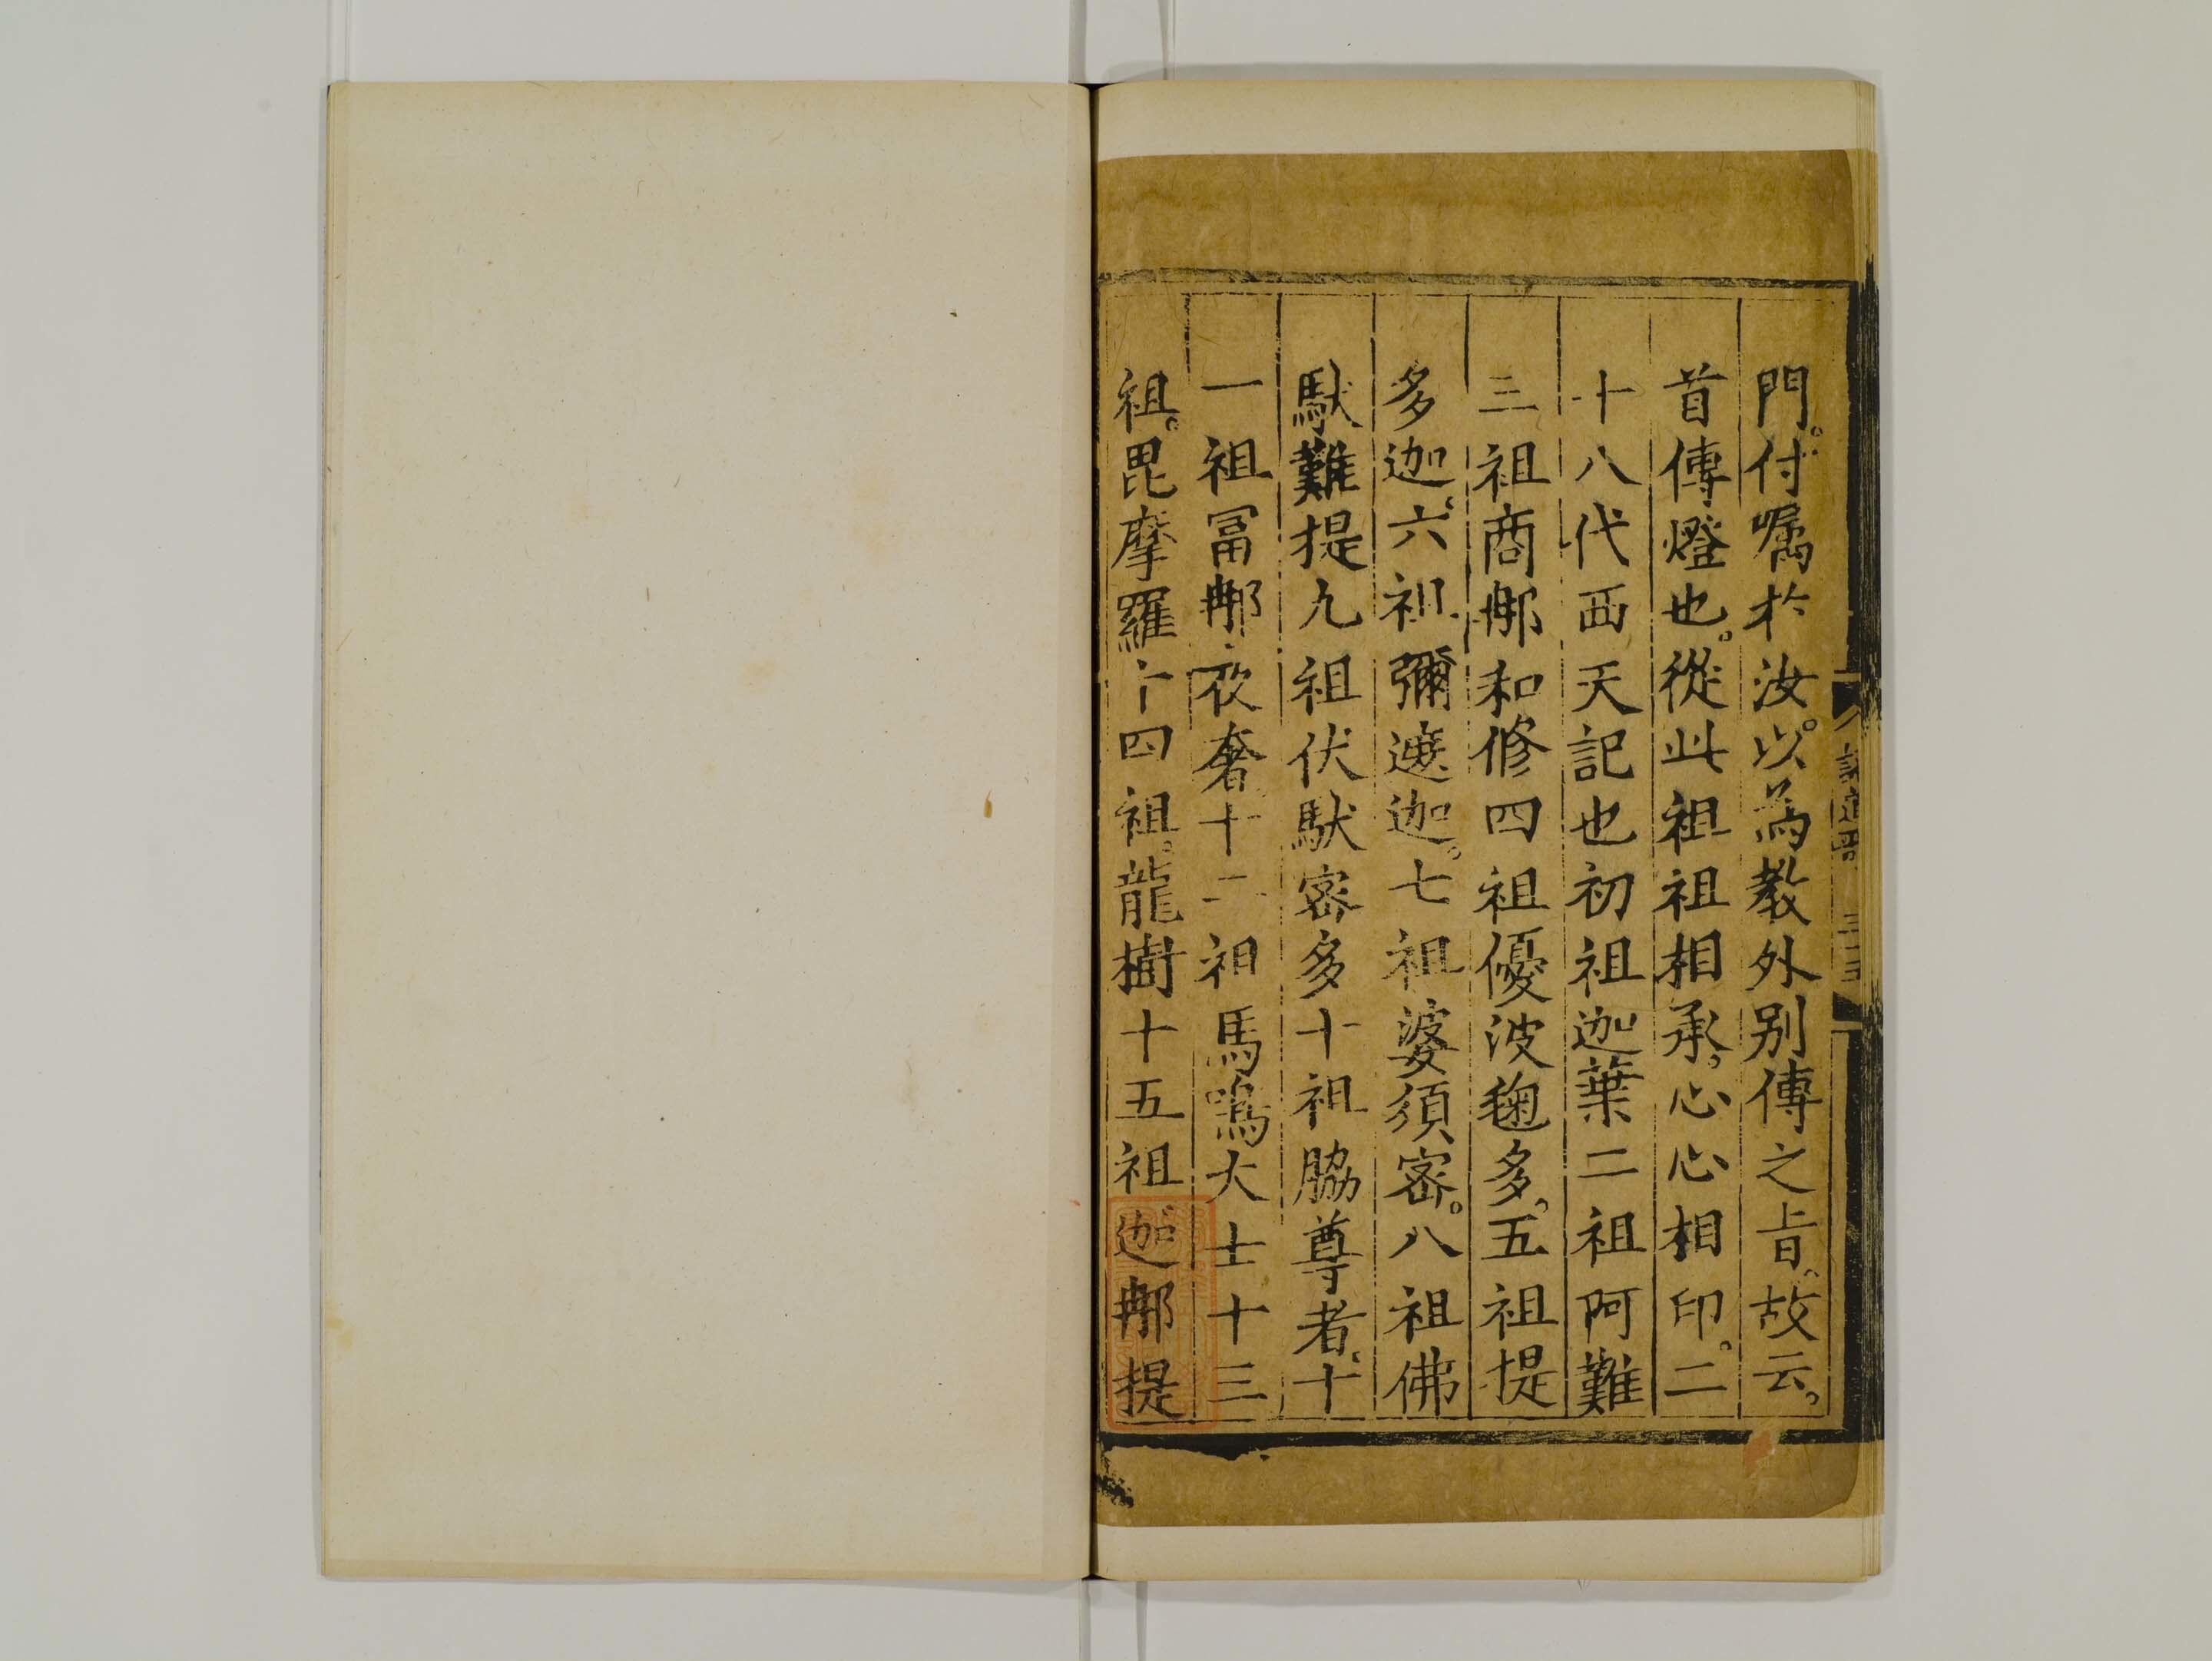 門。付嘱於汝。以為教外别傳之旨。故云。
首傳燈也。從此祖祖相承。心心相印。二
十八代西天記也初祖迦葉二祖阿難
三祖商那和修四祖優波毱多。五祖提
多迦。六祖彌遮迦。七祖婆須密。八祖佛
馱難提九祖伏馱密多十祖脇尊者。十
一祖冨那夜奢十二祖馬鳴大士十三
祖。毘摩羅十四祖。龍樹十五祖迦那提
證道歌